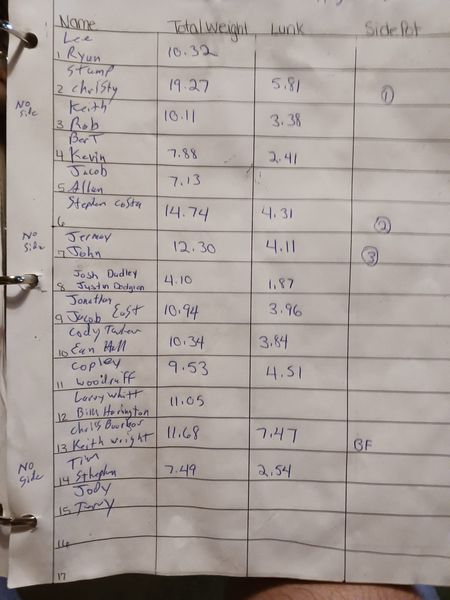 Name Total Weight Lunk Side Pot
Lee
1 Ryan 10.32
Stump
2 Christy 19.27 5.81 ①
No Side Keith
3 Rob 10.11 3.38
BerT
4 Kevin 7.88 2.41
Jacob
5 Allan 7.13
Stephen Costa
6 14.74 4.31 ②
No Side Jeremy
7 John 12.30 4.11 ③
Josh Dudley
8 Justin Dodgian 4.10 1.87
Jonathan
9 Jacob East 10.94 3.96
Cody
10 Ean Hall 10.34 3.84
Copley
11 Woodruff 9.53 4.51
Larry Whitt
12 Bill Harington 11.05
Chris
13 Keith Wright 11.68 7.47 BF
No Side Tim
14 Sthephen 7.49 2.54
Jody
15
16
17